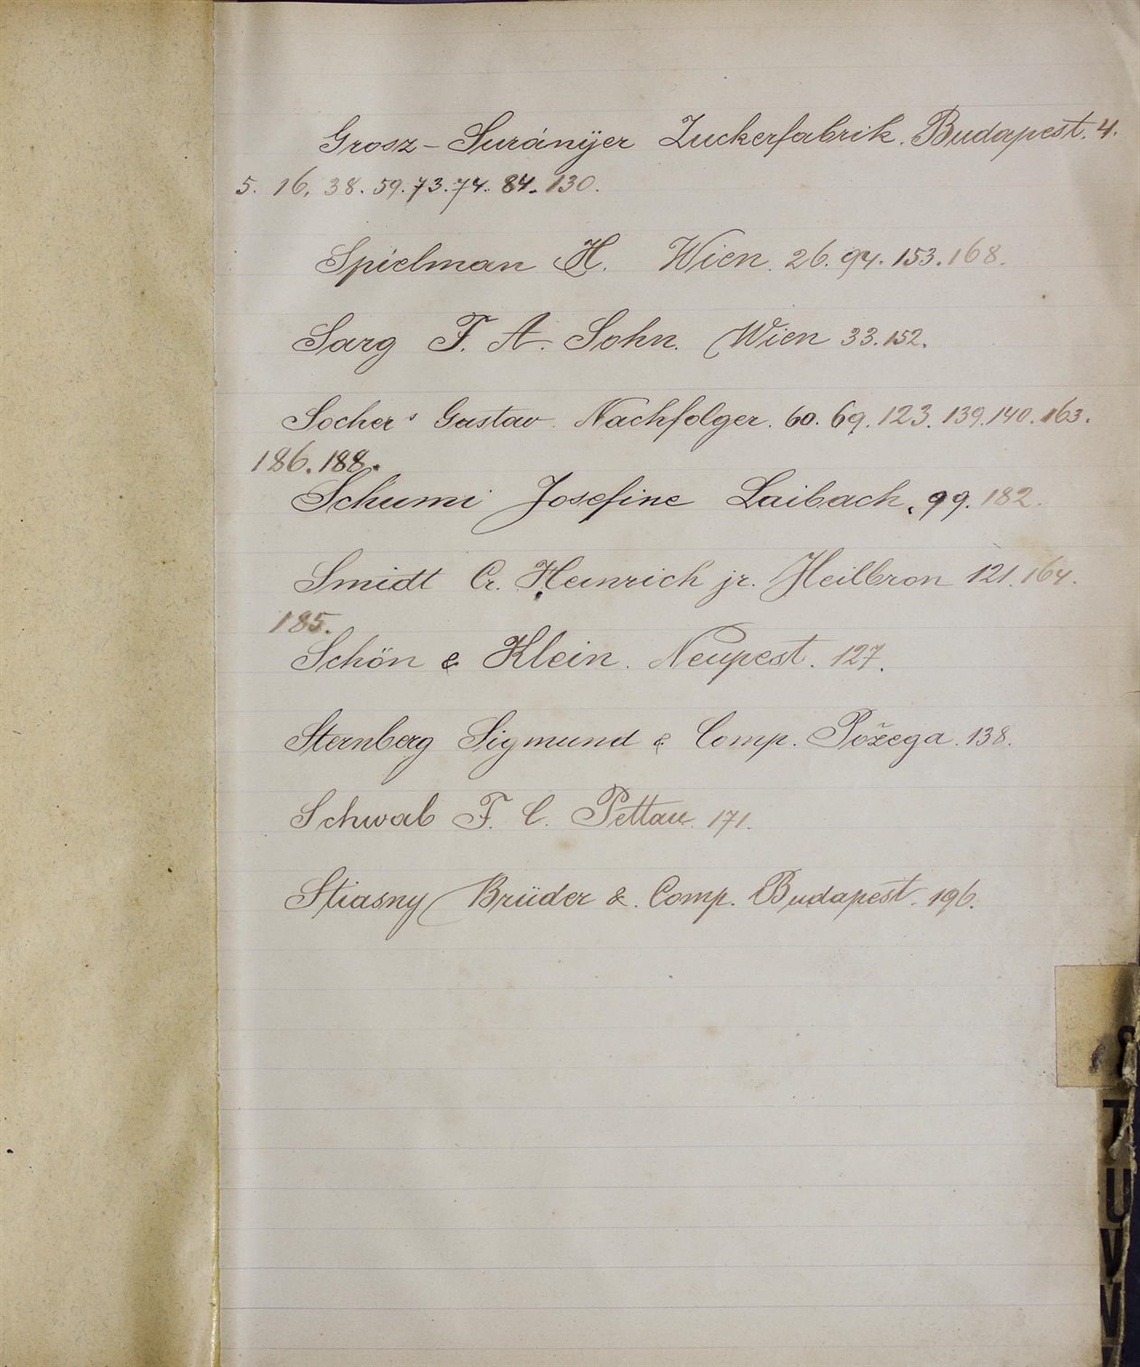 Grosz - Surányer Zuckerfabrik. Budapest. 4.
5. 16. 38. 59. 73. 74. 84. 130.
Spielman H. Wien. 26. 94. 153. 168.
Sarg F. A. Sohn. Wien 33. 152.
Socher's Gustav Nachfolger. 60. 69. 123. 139. 140. 163.
186. 188.
Schumi Josefine Laibach. 99. 182.
Smidt Cr. Heinrich jr. Heilbron 121. 164.
185.
Schön & Klein. Neupest. 127.
Sternberg Sigmund & Comp. Požega. 138.
Schwab F. C. Pettau 171.
Stiasny Brüder & Comp. Budapest. 196.
S
T
U
V
W